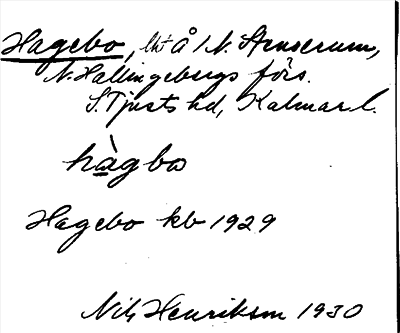 Hagebo, lht å 1 N. Arnserum,
N. Hallingebergs förs.
S. Tjusts hd, Kalmar l.
hàgbo
Hagebo kb 1929
Nils Henrikson 1930